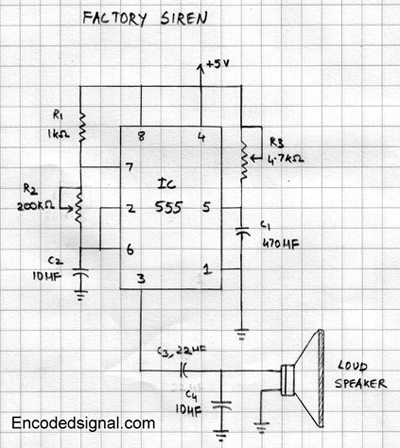 FACTORY SIREN
+5V
R1
1kΩ
8
4
R3
4.7kΩ
7
IC
555
R2
200kΩ
2
5
C1
470MF
6
C2
10MF
1
3
C3, 22MF
LOUD
SPEAKER
C4
10MF
Encodedsignal.com